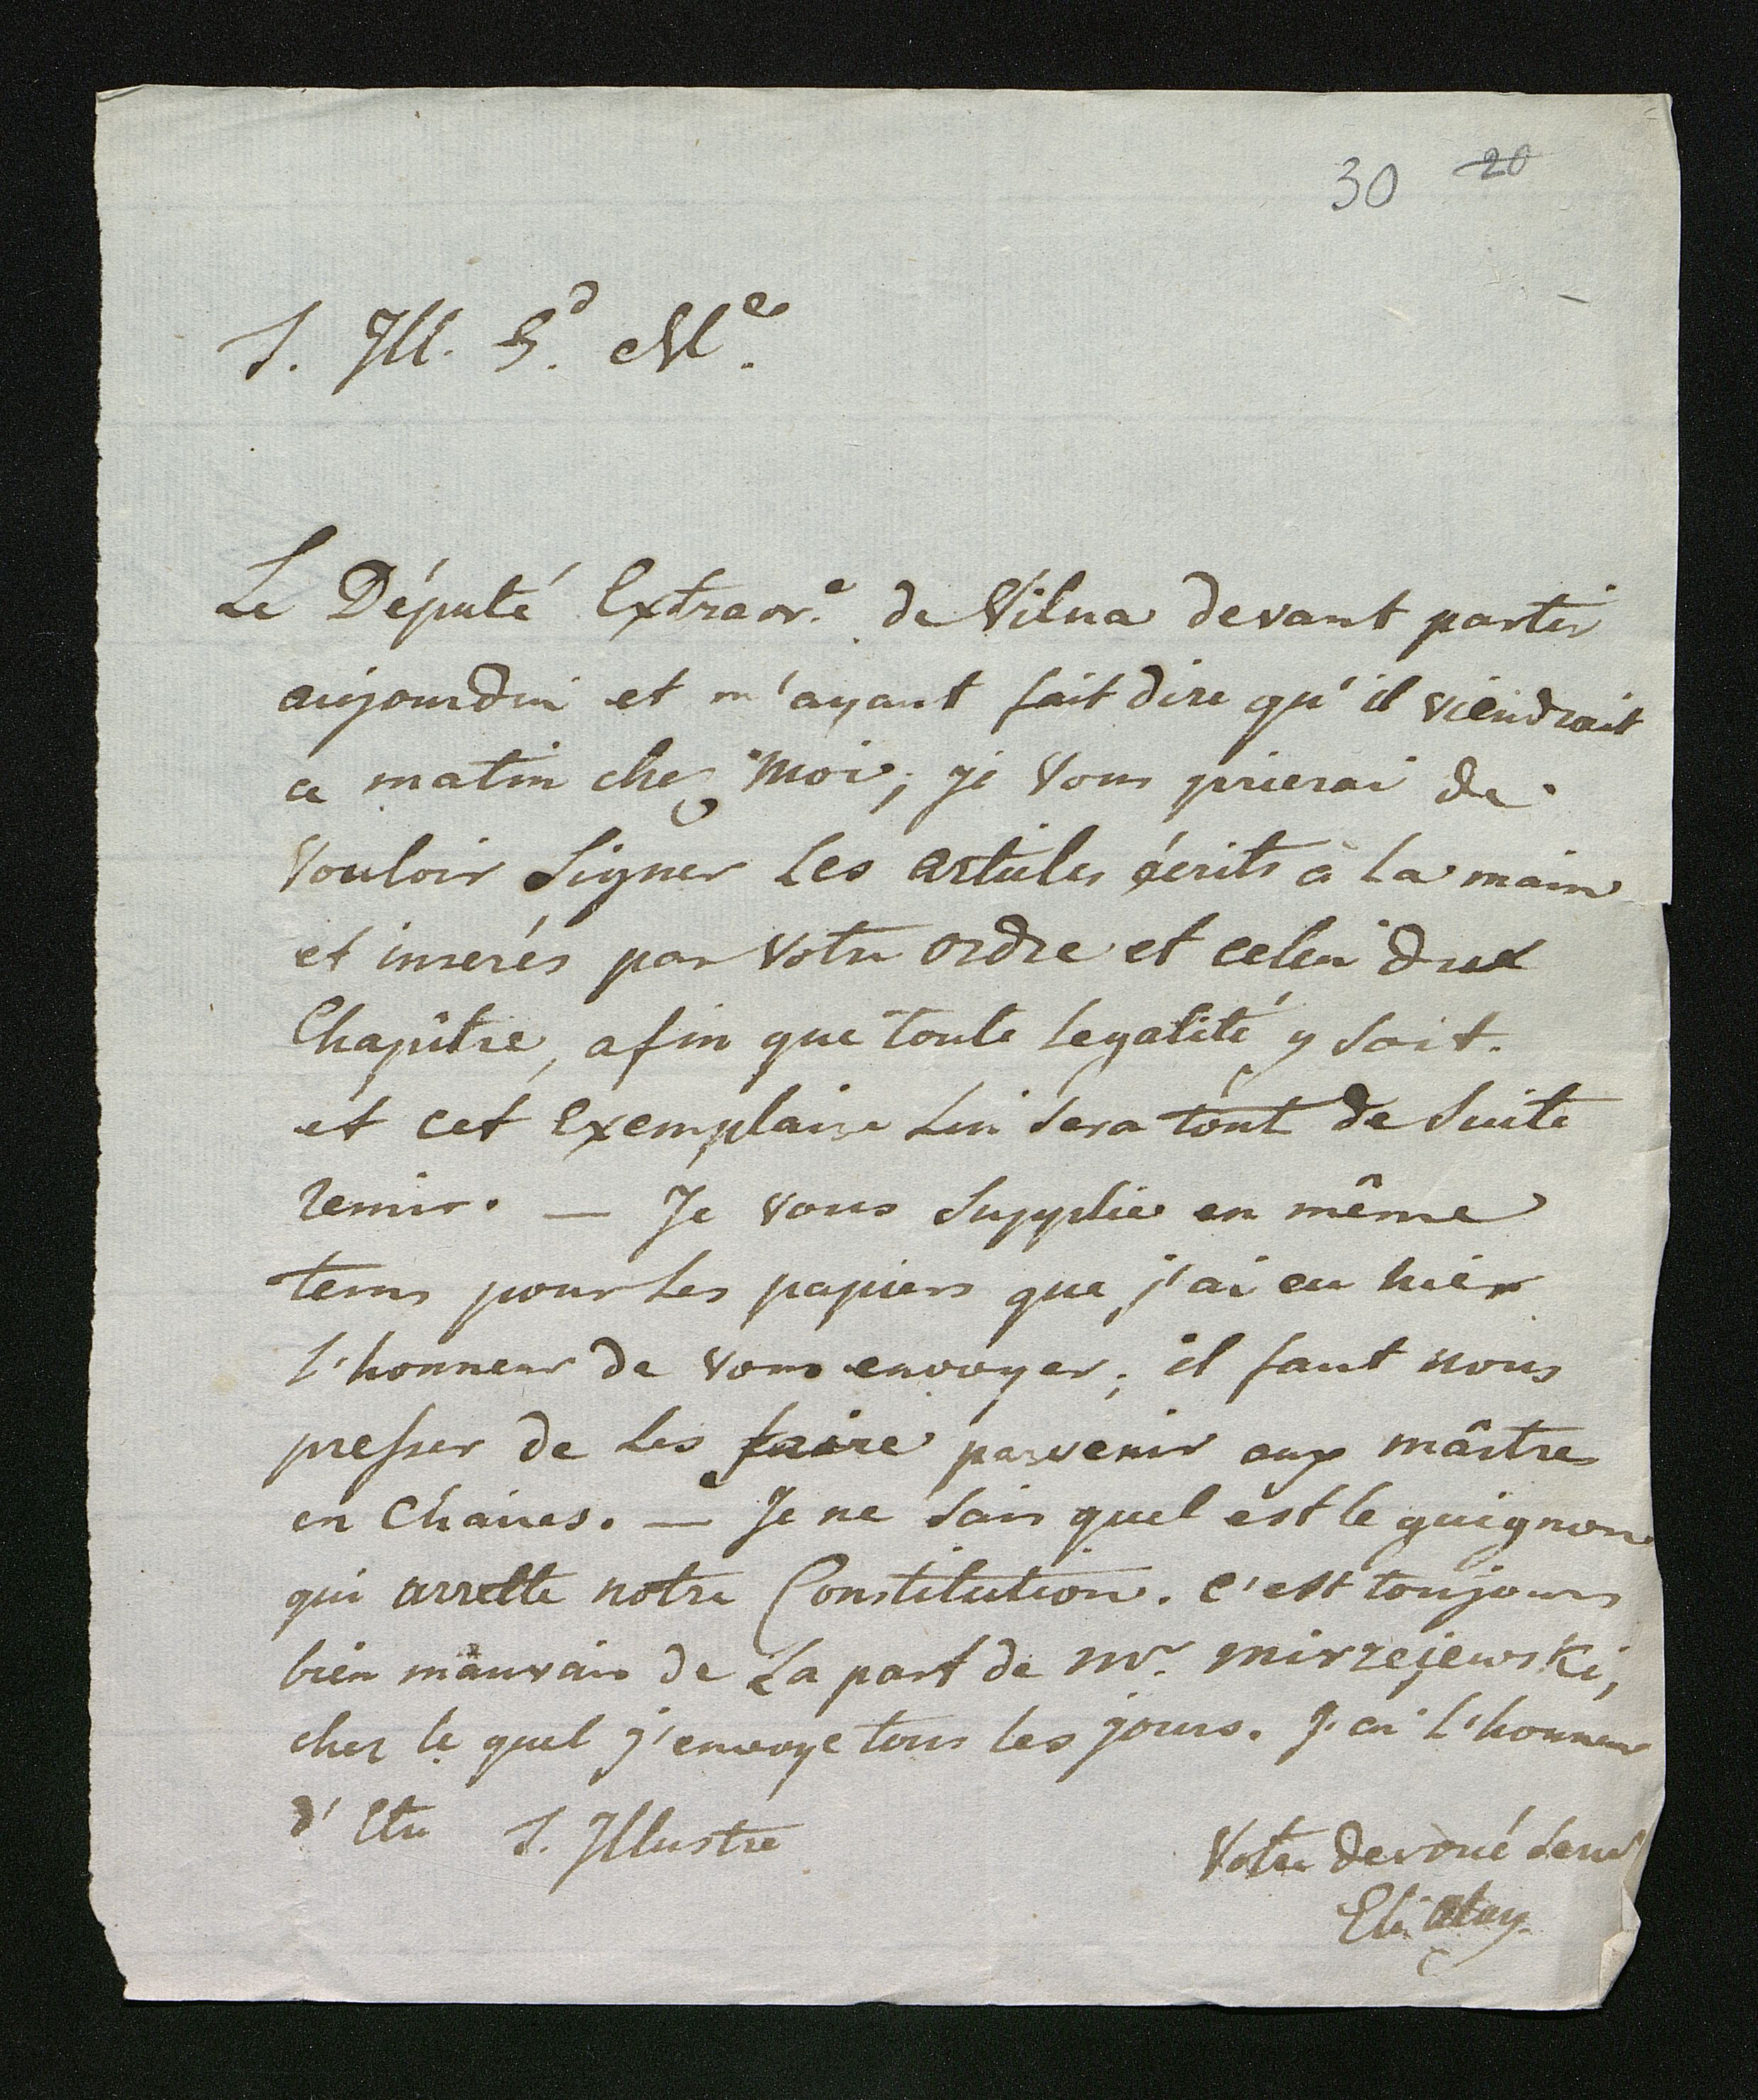 30 20
S. Ill. G.d M.e
Le Député Extraor.e de Vilna devant partir
aujourdui et m'ayant fait dire qu'il viendrait
ce matin chez Moi, je Vous prierai de
Vouloir Signer les articles écrits à la main
et inserés par Votre ordre et celui du
Chapître, afin que toute legalité y soit.
et cet Exemplaire lui sera tout de suite
remis. — Je vous supplie en même
tems pour les papiers que j'ai eu hier
l'honneur de vous envoyer; il faut nous
presser de les faire parvenir aux maîtres
en Chaires. — Je ne sais quel est le guignon
qui arrette notre Constitution. c'est toujours
bien mauvais de la part de Mr. Mirzejewski,
chez le quel j'envoye tous les jours. J'ai l'honneur
d'Etre S. Illustre
Votre devoué serv